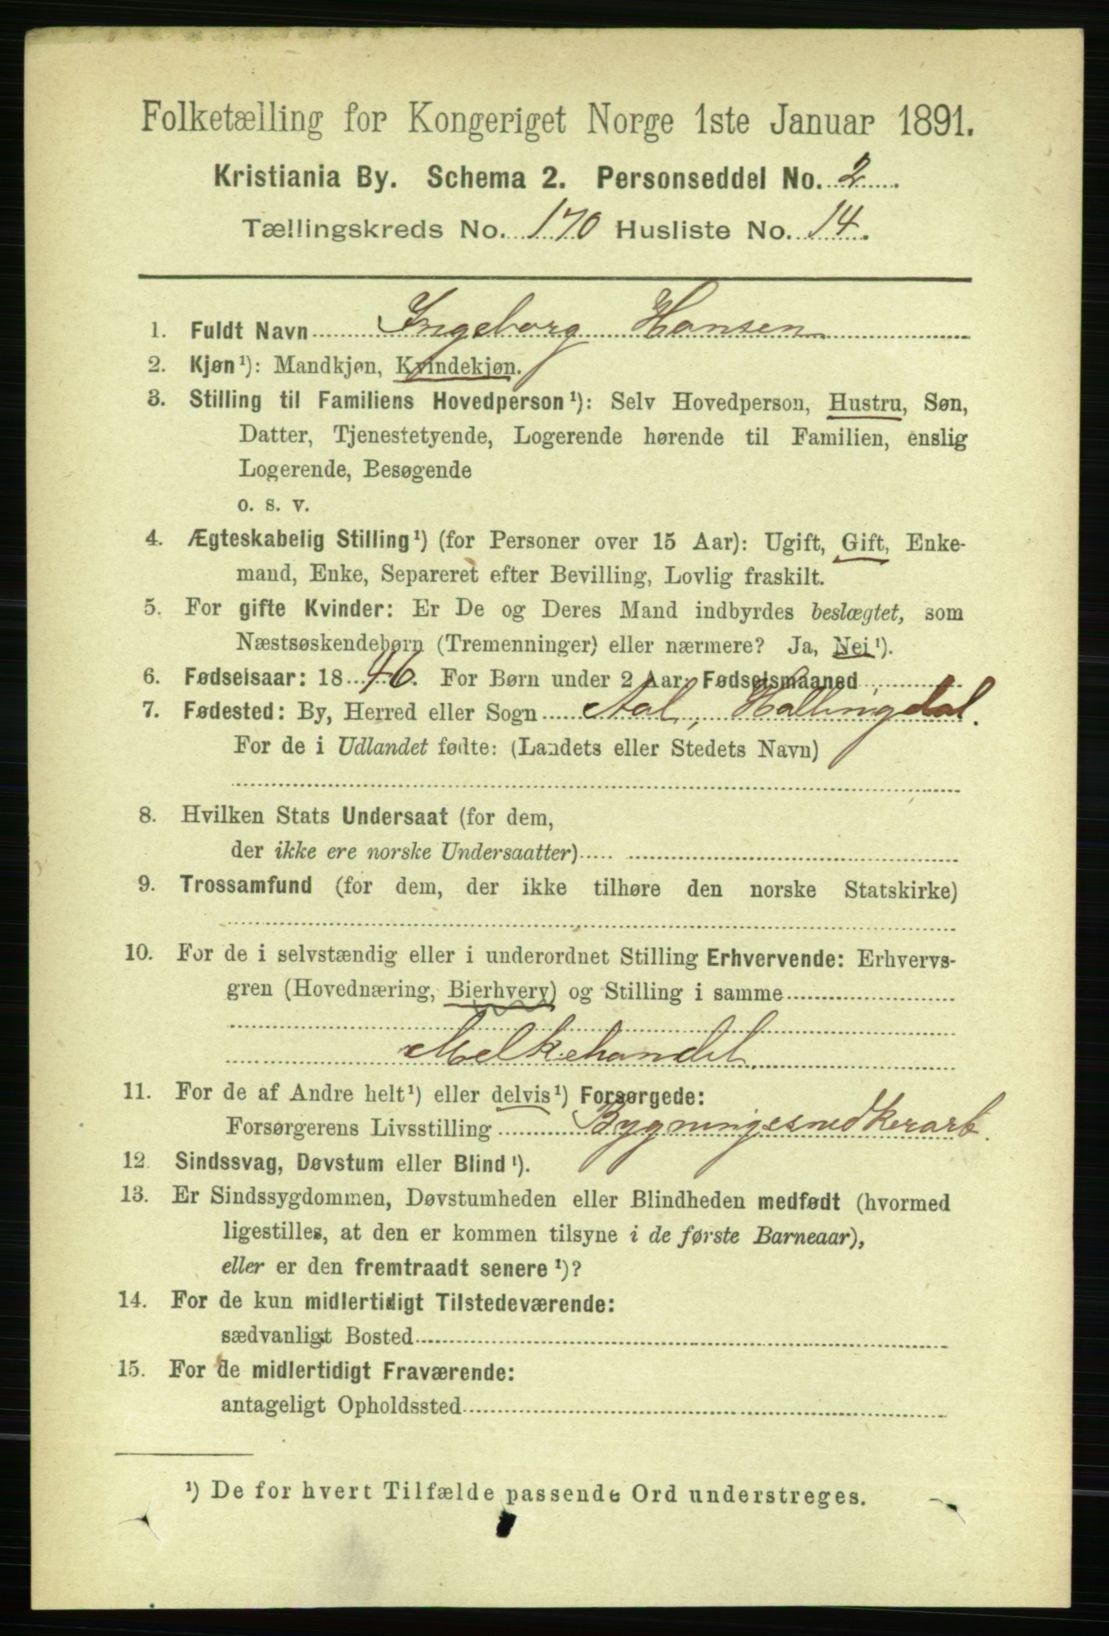 Folketælling for Kongeriget Norge 1ste Januar 1891.
Kristiania By. Schema 2. Personseddel No. 2.
Tællingskreds No. 170 Husliste No. 14.
1. Fuldt Navn Ingeborg Hansen
2. Kjøn¹): Mandkjøn, Kvindekjøn.
3. Stilling til Familiens Hovedperson¹): Selv Hovedperson, Hustru, Søn,
Datter, Tjenestetyende, Logerende hørende til Familien, enslig
Logerende, Besøgende
o. s. v.
4. Ægteskabelig Stilling¹) (for Personer over 15 Aar): Ugift, Gift, Enke-
mand, Enke, Separeret efter Bevilling, Lovlig fraskilt.
5. For gifte Kvinder: Er De og Deres Mand indbyrdes beslægtet, som
Næstsøskendebørn (Tremenninger) eller nærmere? Ja, Nei¹).
6. Fødselsaar: 1846. For Børn under 2 Aar: Fødselsmaaned
7. Fødested: By, Herred eller Sogn Aal, Hallingdal.
For de i Udlandet fødte: (Landets eller Stedets Navn)
8. Hvilken Stats Undersaat (for dem,
der ikke ere norske Undersaatter)
9. Trossamfund (for dem, der ikke tilhøre den norske Statskirke)
10. For de i selvstændig eller i underordnet Stilling Erhvervende: Erhvervs-
gren (Hovednæring, Bierhverv) og Stilling i samme
Melkehandel.
11. For de af Andre helt¹) eller delvis¹) Forsørgede:
Forsørgerens Livsstilling Bygningssnedkerarb.
12. Sindssvag, Døvstum eller Blind¹).
13. Er Sindssygdommen, Døvstumheden eller Blindheden medfødt (hvormed
ligestilles, at den er kommen tilsyne i de første Barneaar),
eller er den fremtraadt senere¹)?
14. For de kun midlertidigt Tilstedeværende:
sædvanligt Bosted
15. For de midlertidigt Fraværende:
antageligt Opholdssted
¹) De for hvert Tilfælde passende Ord understreges.